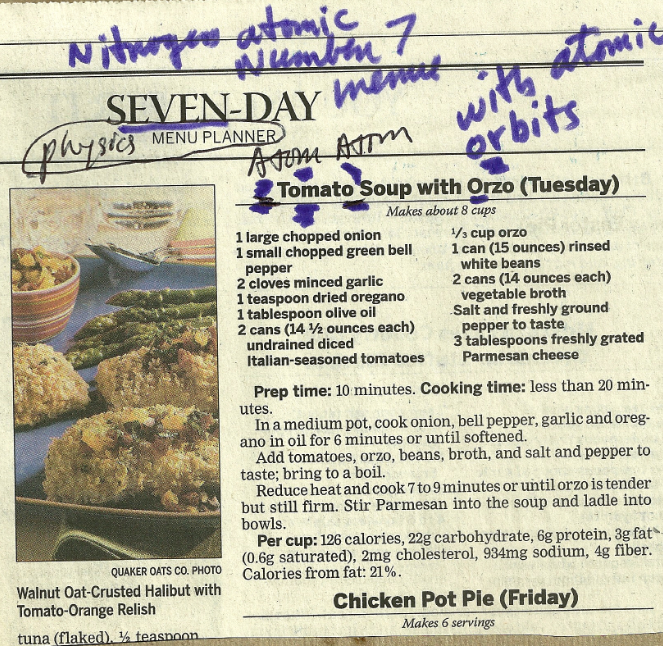 Nitrogen atomic
Number 7
menue
with atomic
orbits
SEVEN-DAY
MENU PLANNER
physics
ATOM ATOM
Tomato Soup with Orzo (Tuesday)
Makes about 8 cups
1 large chopped onion
1 small chopped green bell
pepper
2 cloves minced garlic
1 teaspoon dried oregano
1 tablespoon olive oil
2 cans (14 ½ ounces each)
undrained diced
Italian-seasoned tomatoes
⅓ cup orzo
1 can (15 ounces) rinsed
white beans
2 cans (14 ounces each)
vegetable broth
Salt and freshly ground
pepper to taste
3 tablespoons freshly grated
Parmesan cheese
Prep time: 10 minutes. Cooking time: less than 20 min-
utes.
In a medium pot, cook onion, bell pepper, garlic and oreg-
ano in oil for 6 minutes or until softened.
Add tomatoes, orzo, beans, broth, and salt and pepper to
taste; bring to a boil.
Reduce heat and cook 7 to 9 minutes or until orzo is tender
but still firm. Stir Parmesan into the soup and ladle into
bowls.
Per cup: 126 calories, 22g carbohydrate, 6g protein, 3g fat
(0.6g saturated), 2mg cholesterol, 934mg sodium, 4g fiber.
Calories from fat: 21%.
QUAKER OATS CO. PHOTO
Walnut Oat-Crusted Halibut with
Tomato-Orange Relish
tuna (flaked), ½ teaspoon
Chicken Pot Pie (Friday)
Makes 6 servings